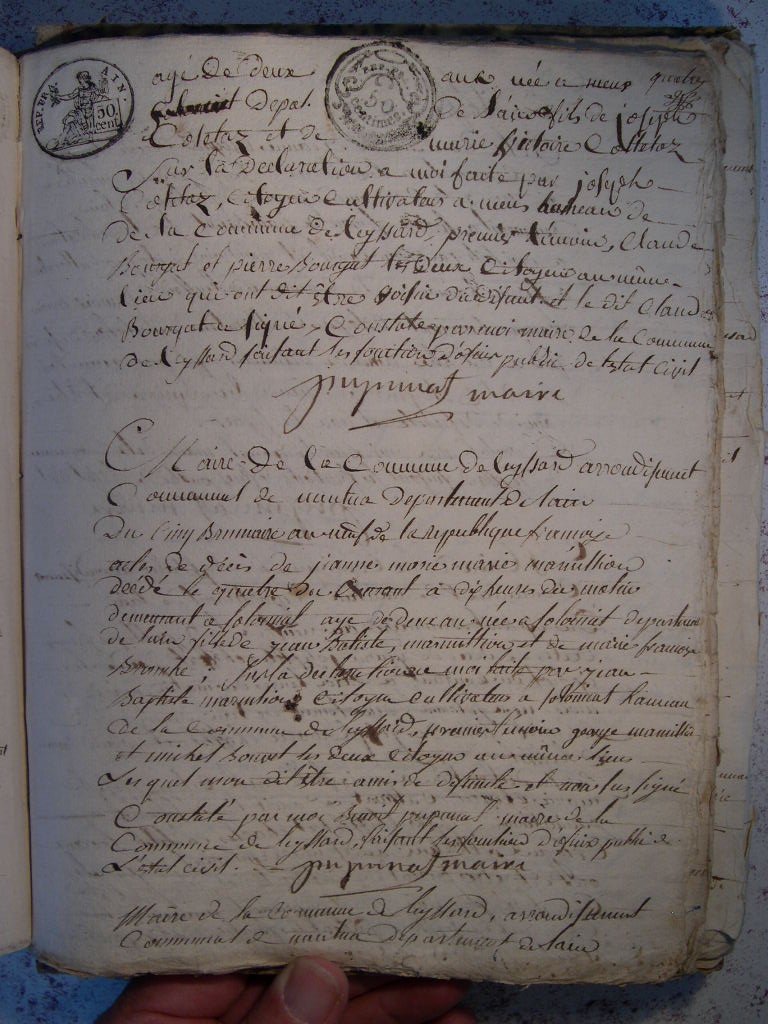 REP. FRA. AIN.
50 cent.
REP. FRA. 50 centimes
agé de deux ans née a meux quatre
Depar. De L'ain fils de joseph
Coletaz et de marie victoire Coletaz
Sur la Declaration a moi faite par joseph
Coletaz, Citoyen Cultivateur a meux hameau de
De la Commune de leyssard, premier témoin, Claude
Bourgat et pierre Bourgat les deux Citoyen au même
lieu qui ont dit être voisin du défunt et le dit Claude
Bourgat a signé, Constaté par moi maire de la Commune
De leyssard faisant les fonction d'oficier public de l'etat Civil
maire
Maire De la Commune de leyssard arrondisement
Communal de nantua Departement De lain
Du Cinq Brumaire an neuf de la republique françoise
acte de décès de jeanne marie marie marmillion
decédé le quatre du Courant à dix heures du matin
demeurant a solomiat age de deux an née a solomiat departement
de lain fille de jean Batiste, marmillion et de marie françoise
; sur la declaration a moi faite par jean
Baptiste marmillion Citoyen Cultivateur a solomiat hameau
De la Commune de leyssard, premier temoin george marmillion
et michel Bonnet les deux Citoyen au même lieu
Lesquel mon dit être amis de defunte et non su signé
Constaté par moi Benoit maire de la
Commune de leyssard, faisant les fonction d'oficier public de
L'etat civil. maire
Maire de la Commune de leyssard, arrondisement
Communal de nantua departement de lain